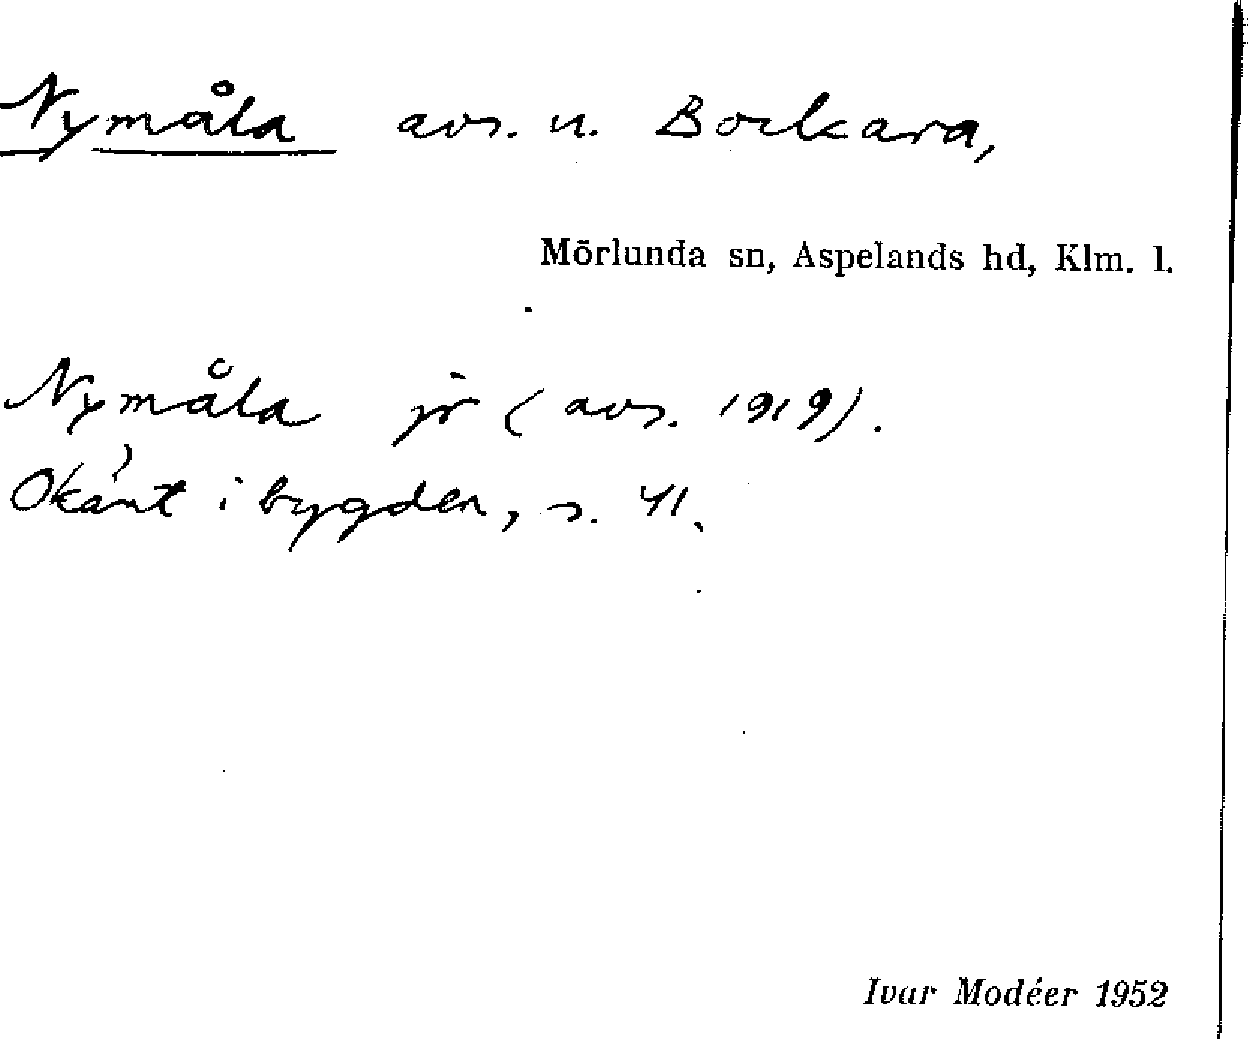 Nymåla avs. u. Bockara,
Mörlunda sn, Aspelands hd, Klm. l.
Nymåla jr (avs. 1919).
Okänt i bygden, s. 41.
Ivar Modéer 1952